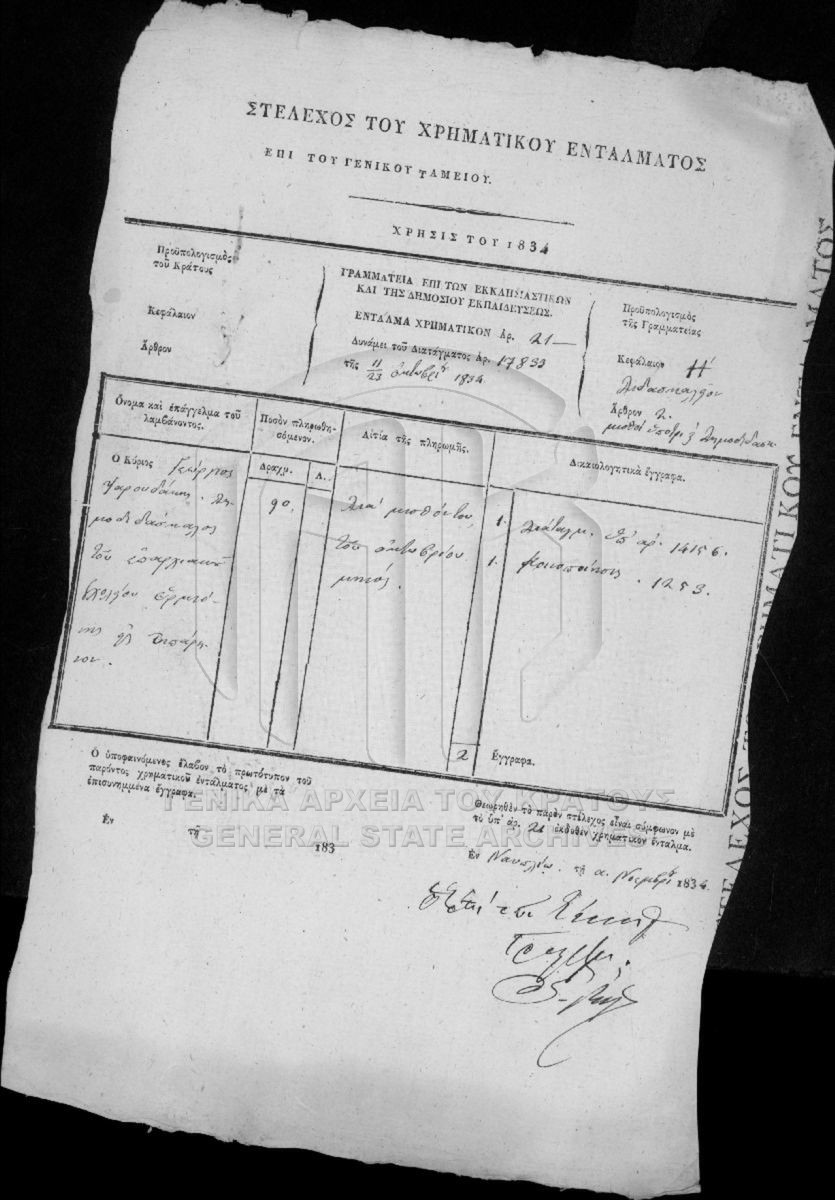 ΣΤΕΛΕΧΟΣ ΤΟΥ ΧΡΗΜΑΤΙΚΟΥ ΕΝΤΑΛΜΑΤΟΣ
ΕΠΙ ΤΟΥ ΓΕΝΙΚΟΥ ΤΑΜΕΙΟΥ.
ΧΡΗΣΙΣ ΤΟΥ 1834
Προϋπολογισμὸς
τοῦ Κράτους
Κεφάλαιον
Ἄρθρον
ΓΡΑΜΜΑΤΕΙΑ ΕΠΙ ΤΩΝ ΕΚΚΛΗΣΙΑΣΤΙΚΩΝ
ΚΑΙ ΤΗΣ ΔΗΜΟΣΙΟΥ ΕΚΠΑΙΔΕΥΣΕΩΣ.
ΕΝΤΑΛΜΑ ΧΡΗΜΑΤΙΚΟΝ Ἀρ. 21
Δυνάμει τοῦ Διατάγματος Ἀρ. 17833
τῆς 11/23 ὀκτωβρίου 1834
Προϋπολογισμὸς
τῆς Γραμματείας
Κεφάλαιον Η'
Ἄρθρον 2.
μισθοὶ
Ὄνομα καὶ ἐπάγγελμα τοῦ
λαμβάνοντος.
Ποσὸν πληρωθη-
σόμενον.
Αἰτία τῆς πληρωμῆς.
Δικαιολογητικὰ ἔγγραφα.
Δραχμ. Λ.
Ὁ Κύριος Γεώργιος
Ψαρουδάκης. δη-
μοδιδάσκαλος
τοῦ ἐπαρχιακοῦ
σχολείου Ἑρμιό-
νης
90.
Διὰ μισθόν του
τοῦ ὀκτωβρίου
μηνός.
1. Διάταγμ. ὑπ' ἀρ. 14156.
1. 1253.
2 Ἔγγραφα.
Ὁ ὑποφαινόμενος ἔλαβον τὸ πρωτότυπον τοῦ
παρόντος χρηματικοῦ ἐντάλματος μὲ τὰ
ἐπισυνημμένα ἔγγραφα.
Ἐν τῇ
183
Θεωρηθὲν τὸ παρὸν στέλεχος εἶναι σύμφωνον μὲ
τὸ ὑπ' ἀρ. 21 ἐκδοθὲν χρηματικὸν ἔνταλμα.
Ἐν Ναυπλίῳ τῇ α. Νοεμβρίου 1834
ΓΕΝΙΚΑ ΑΡΧΕΙΑ ΤΟΥ ΚΡΑΤΟΥΣ
GENERAL STATE ARCHIVES